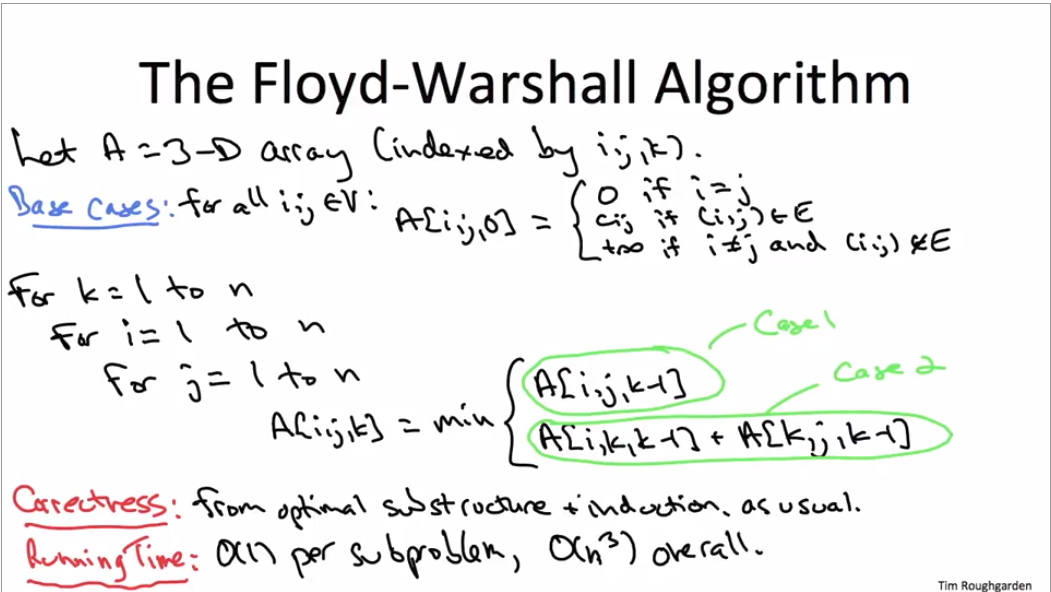 The Floyd-Warshall Algorithm
Let A = 3-D array (indexed by i,j,k).
Base Cases: For all i,j ∈ V: A[i,j,0] = { 0 if i=j
cij if (i,j) ∈ E
+∞ if i≠j and (i,j) ∉ E
For k = 1 to n
For i = 1 to n
For j = 1 to n
Case 1
A[i,j,k] = min { A[i,j,k-1]
Case 2
A[i,k,k-1] + A[k,j,k-1]
Correctness: From optimal substructure + induction, as usual.
Running Time: O(1) per subproblem, O(n³) overall.
Tim Roughgarden